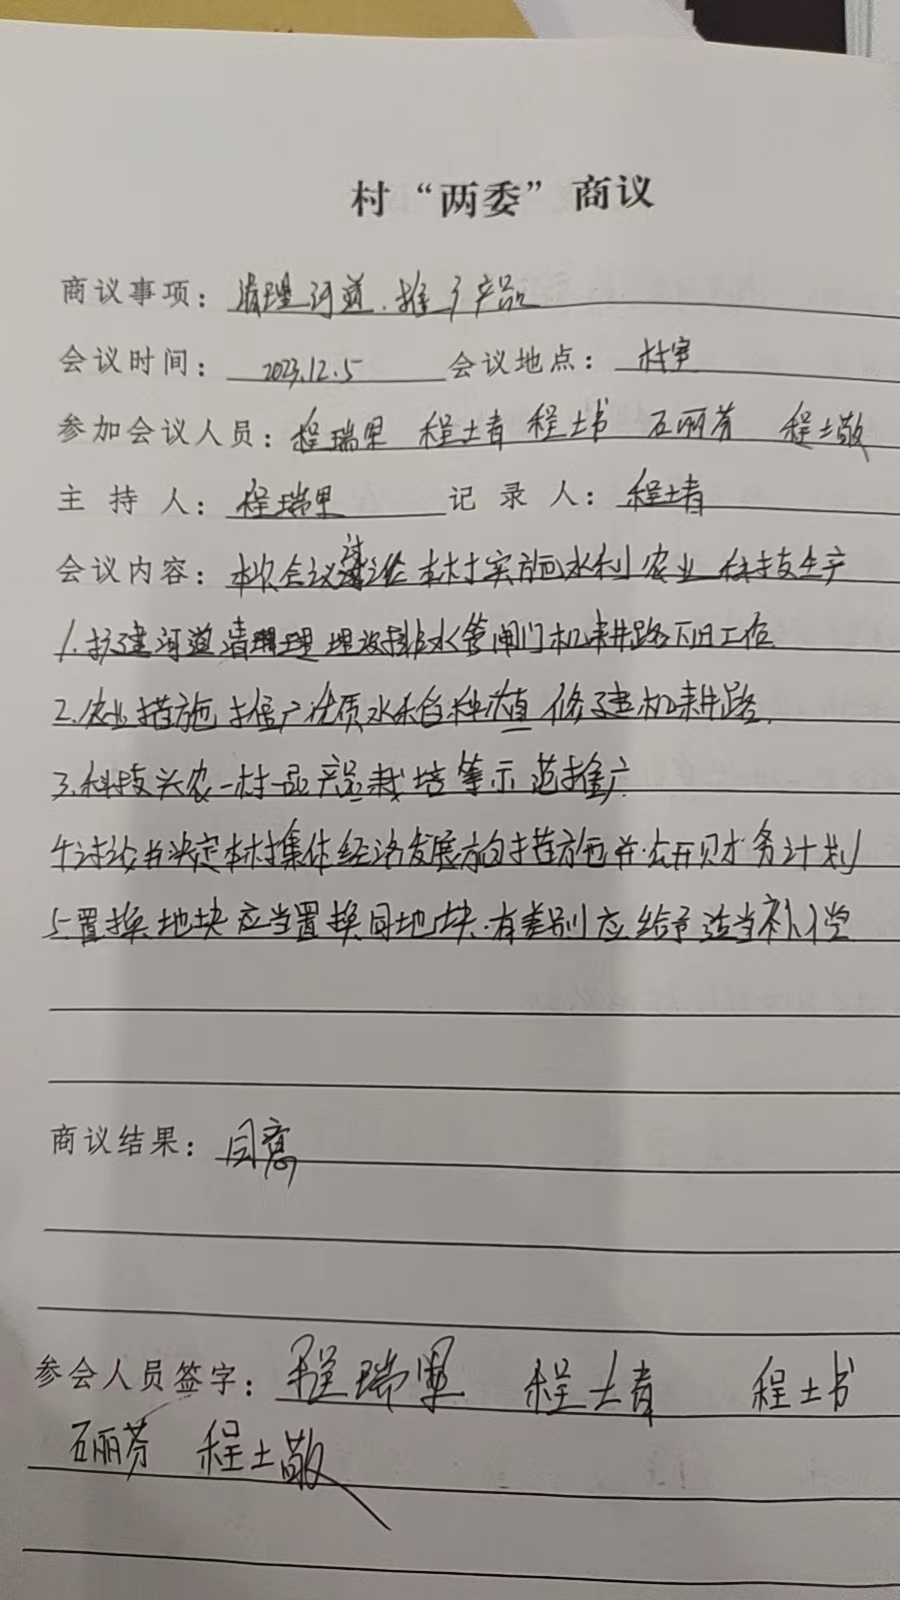 村“两委”商议
商议事项：清理河道.推广产品
会议时间：2023.12.5 会议地点：村室
参加会议人员：程瑞 程士青 程士书 石丽芳 程士敬
主持人：程瑞 记录人：程士青
会议内容：本次会议讨论本村实施水利农业科技生产
1.扩建河道清理埋设排水管闸门机耕路下田工作
2.农业措施推广优质水稻种植修建机耕路.
3.科技兴农一村一品产品栽培等示范推广
4.讨论书决定本村集体经济发展方向措施并公开财务计划
5.置换地块应当置换同地块.有差别应给予适当补偿
商议结果：同意
参会人员签字：程瑞 程士青 程士书
石丽芳 程士敬